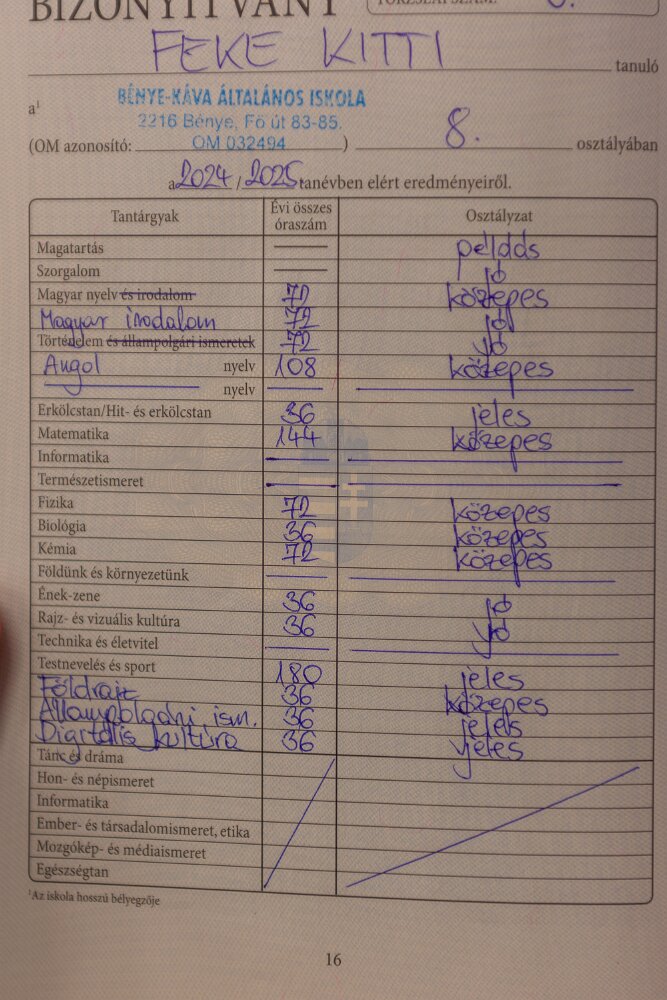 BIZONYÍTVÁNY
TÖRZSLAPSZÁM:
FEKE KITTI tanuló
a¹ BÉNYE-KÁVA ÁLTALÁNOS ISKOLA
2216 Bénye, Fő út 83-85.
(OM azonosító: OM 032494) 8. osztályában
a 2024/2025 tanévben elért eredményeiről.
Tantárgyak Évi összes óraszám Osztályzat
Magatartás — példás
Szorgalom — jó
Magyar nyelv és irodalom 72 közepes
Magyar irodalom 72 jó
Történelem és állampolgári ismeretek 72 jó
Angol nyelv 108 közepes
nyelv
Erkölcstan/Hit- és erkölcstan 36 jeles
Matematika 144 közepes
Informatika
Természetismeret
Fizika 72 közepes
Biológia 36 közepes
Kémia 72 közepes
Földünk és környezetünk
Ének-zene 36 jó
Rajz- és vizuális kultúra 36 jó
Technika és életvitel
Testnevelés és sport 180 jeles
Földrajz 36 közepes
Állampolgári ism. 36 jeles
Digitális kultúra 36 jeles
Tánc és dráma
Hon- és népismeret
Informatika
Ember- és társadalomismeret, etika
Mozgókép- és médiaismeret
Egészségtan
¹Az iskola hosszú bélyegzője
16